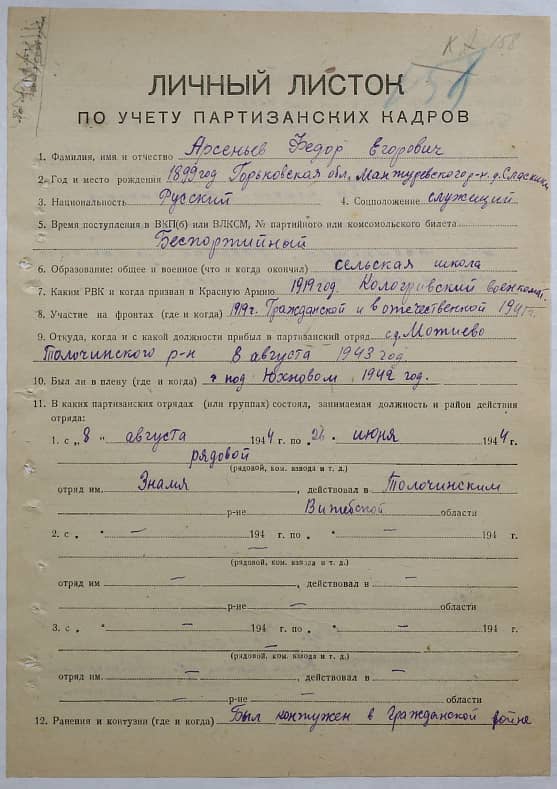 К 7 158
158
ЛИЧНЫЙ ЛИСТОК
ПО УЧЕТУ ПАРТИЗАНСКИХ КАДРОВ
1. Фамилия, имя и отчество Арсеньев Федор Егорович
2. Год и место рождения 1899 год Горьковская обл. Мантуревского р-н. д.
3. Национальность Русский 4. Соцположение служищий
5. Время поступления в ВКП(б) или ВЛКСМ, № партийного или комсомольского билета
Беспортийный
6. Образование: общее и военное (что и когда окончил) сельская школа
7. Каким РВК и когда призван в Красную Армию 1919 год. Кологривский военкомат
8. Участие на фронтах (где и когда) 1919г. Гражданской и в отечественной 1941г.
9. Откуда, когда и с какой должности прибыл в партизанский отряд с д. Мотиево
Толочинского р-н в августа 1943 год.
10. Был ли в плену (где и когда) под Юхновом 1942 год.
11. В каких партизанских отрядах (или группах) состоял, занимаемая должность и район действия
отряда:
1. с „ 8 " августа 1944 г. по „ 26 " июня 1944 г.
рядовой
(рядовой, ком. взвода и т. д.)
отряд им. Знамя, действовал в Толочинским
р-не Витебской области
2. с „ " — 194 г. по „ " — 194 г.
—
(рядовой, ком. взвода и т. д.)
отряд им — , действовал в —
р-не — области
3. с „ " — 194 г. по „ " — 194 г.
—
(рядовой, ком. взвода и т. д.)
отряд им. — , действовал в —
— р-не — области
12. Ранения и контузии (где и когда) Был контужен в Гражданской войне